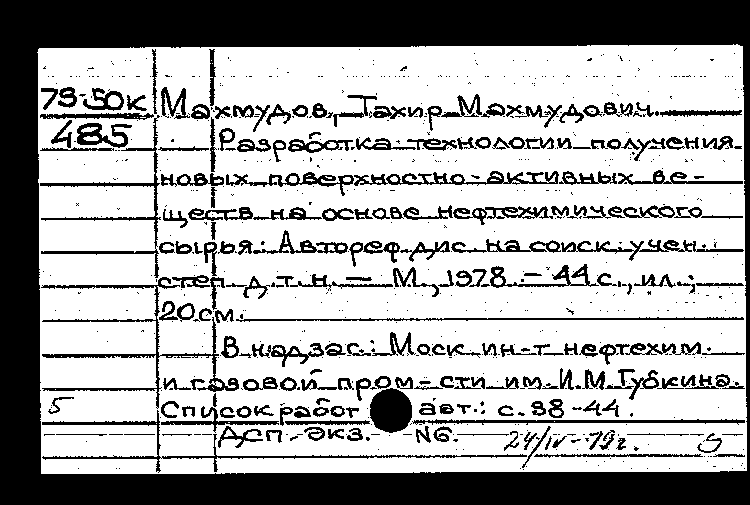 79-50к Махмудов, Тахир Махмудович
485 Разработка технологии получения
новых поверхностно-активных ве-
ществ на основе нефтехимического
сырья: Автореф. дис. на соиск. учен.
степ. д. т. н. — М., 1978. — 44 с., ил.;
20 см.
В надзаг.: Моск. ин-т нефтехим.
и газовой пром-сти им. И.М. Губкина.
5 Список работ авт.: с. 38-44.
ДСП. Экз. №
24/IV-79г.